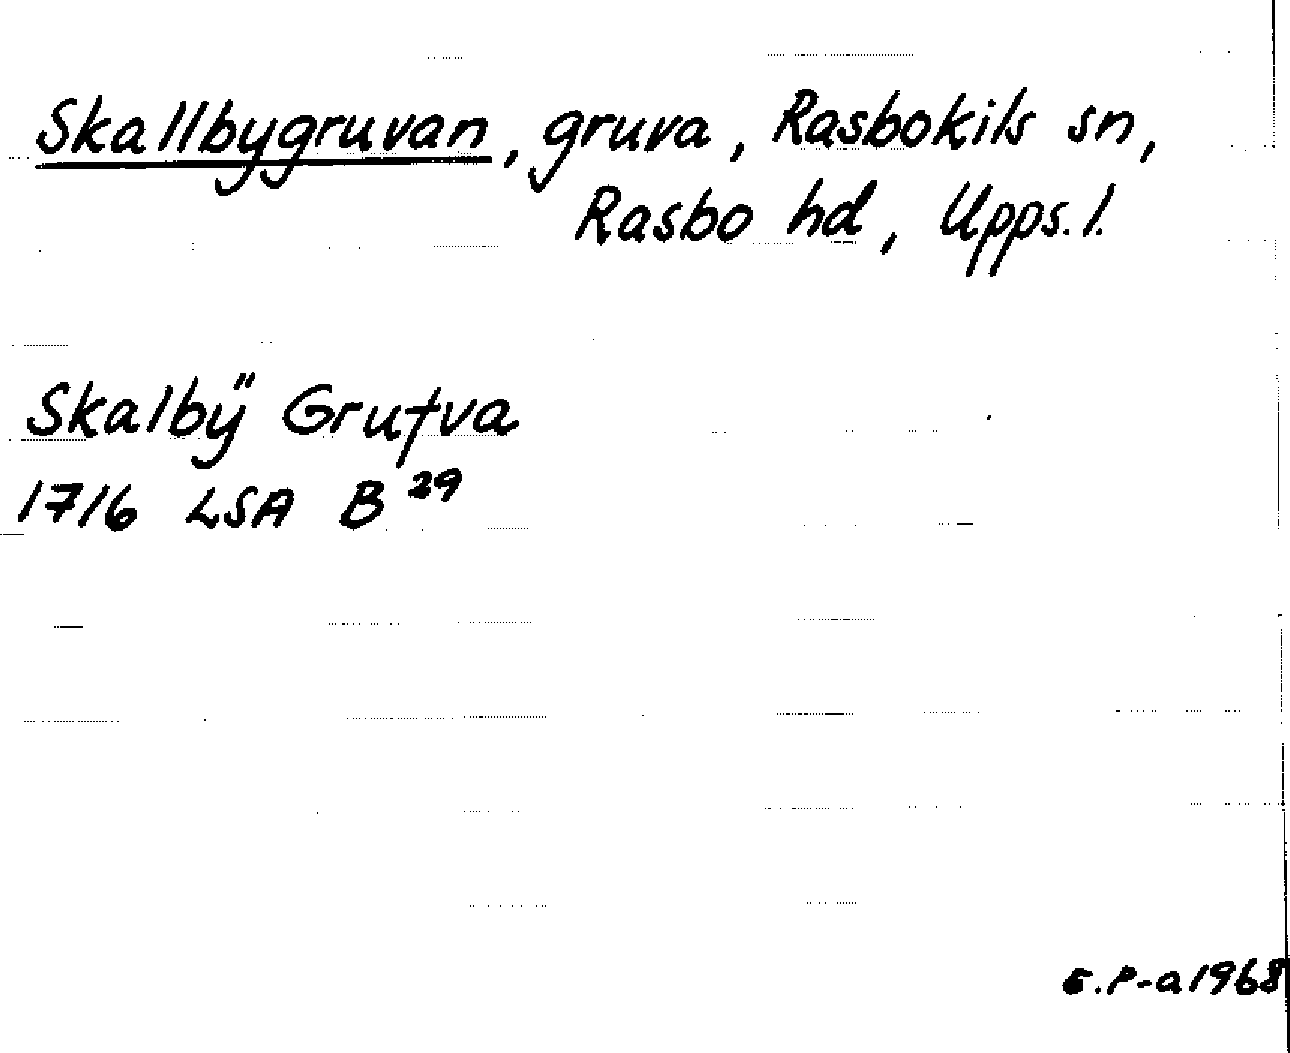 Skallbygruvan, gruva, Rasbokils sn,
Rasbo hd, Upps.l.
Skalbÿ Grufva
1716 LSA B 29
E.P-a 1968